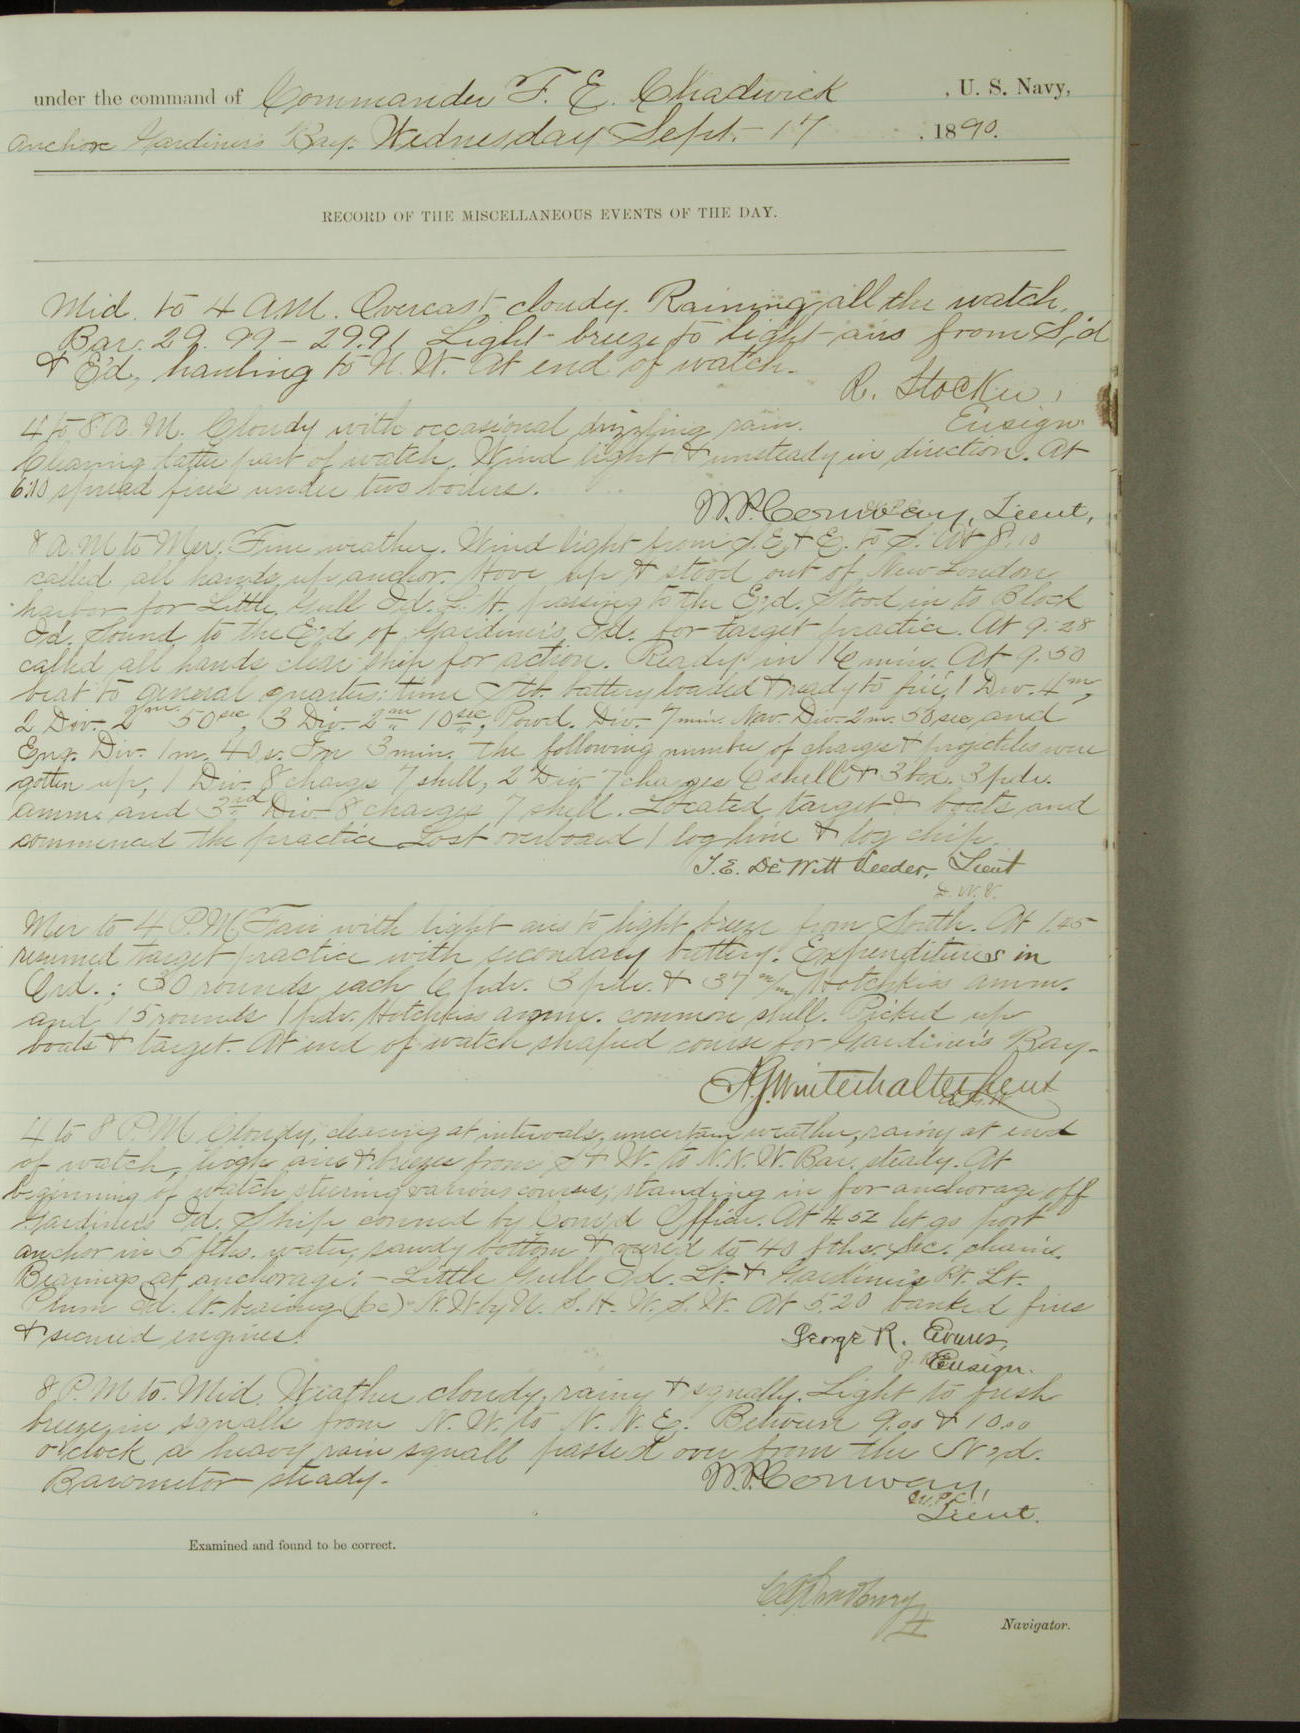 under the command of Commander F. E. Chadwick , U. S. Navy,
Anchor Gardiner's Bay. Wednesday Sept. 17 , 1890.
RECORD OF THE MISCELLANEOUS EVENTS OF THE DAY.
Mid. to 4 AM. Overcast cloudy. Raining all the watch,
Bar. 29.99 – 29.91 Light breeze to light airs from S'd
& E'd, hauling to N. W. At end of watch.
R. Stocker,
Ensign
4 to 8 A. M. Cloudy with occasional drizzling rain.
Clearing latter part of watch. Wind light & unsteady in direction. At
6:10 spread fires under two boilers.
W.P. Conway, Lieut,
8 A.M to Mer. Fine weather. Wind light from S.E. & E. to S. At 8.10
called all hands, up anchor. Hove up & stood out of New London
harbor for Little Gull Id. L. H. passing to the E'd. Stood in to Block
Id. Sound to the E'd of Gardiner's Id. for target practice. At 9:28
called all hands clear ship for action. Ready in 16 min. At 9.50
beat to general quarters: time Stb. battery loaded & ready to fire, 1 Div. 4m,
2 Div. 2m 50sec, 3 Div. 2m 10sec, Powd. Div. 7 min. Nav. Div. 2m. 50 sec and
Eng. Div. 1m. 40s. In 3 min. the following number of charges & projectiles were
gotten up, 1 Div. 8 charges 7 shell, 2 Div. 7 charges 6 shell & 3 box. 3 pdr.
ammn. and 3rd Div 8 charges 7 shell. Located target & boats and
commenced the practice Lost overboard 1 log line & log chip.
T. E. DeWitt Veeder, Lieut
Mer to 4 P.M Fair with light airs to light breeze from South. At 1.45
resumed target practice with secondary battery. Expenditures in
Ord.: 30 rounds each 6 pdr. 3 pdr. & 37 m/m Hotchkiss amm.
and 15 rounds 1 pdr. Hotchkiss ammn. common shell. Picked up
boats & target. At end of watch shaped course for Gardiner's Bay–
A.G. Winterhalter Lieut
4 to 8 P.M Cloudy, clearing at intervals, uncertain weather, rainy at end
of watch, light airs & breezes from S & W. to N.N.W. Bar. steady. At
beginning of watch steering various courses, standing in for anchorage off
Gardiner's Id. Ship conned by Com'd'g Officer. At 4.52 let go port
anchor in 5 fths. water, sandy bottom & veered to 40 fths. Sec. chains.
Bearings at anchorage: – Little Gull Id. Lt. & Gardiner's Pt. Lt.
Plum Id. Lt. bearing (pc) N. W by N. S. W. At 5.20 banked fires
& secured engines.
George R. Evans,
Ensign.
8 P.M to Mid. Weather cloudy, rainy & squally. Light to fresh
breeze in squalls from N. W. to N. N. E. Between 9.00 & 10.00
o'clock a heavy rain squall passed over from the N'd.
Barometer steady.
W.P. Conway,
W.P.C.
Lieut.
Examined and found to be correct.
Navigator.